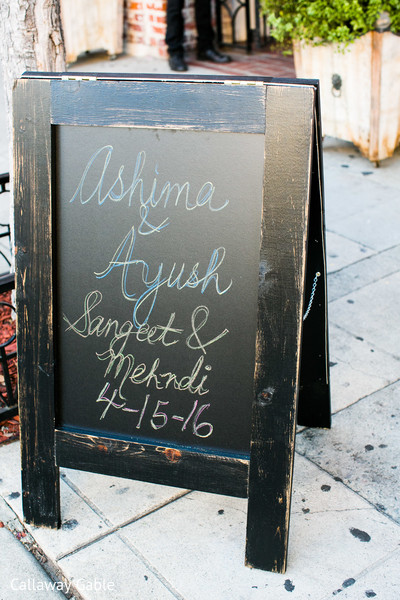 Ashima
&
Ayush
Sangeet &
Mehndi
4-15-16
Callaway Gable